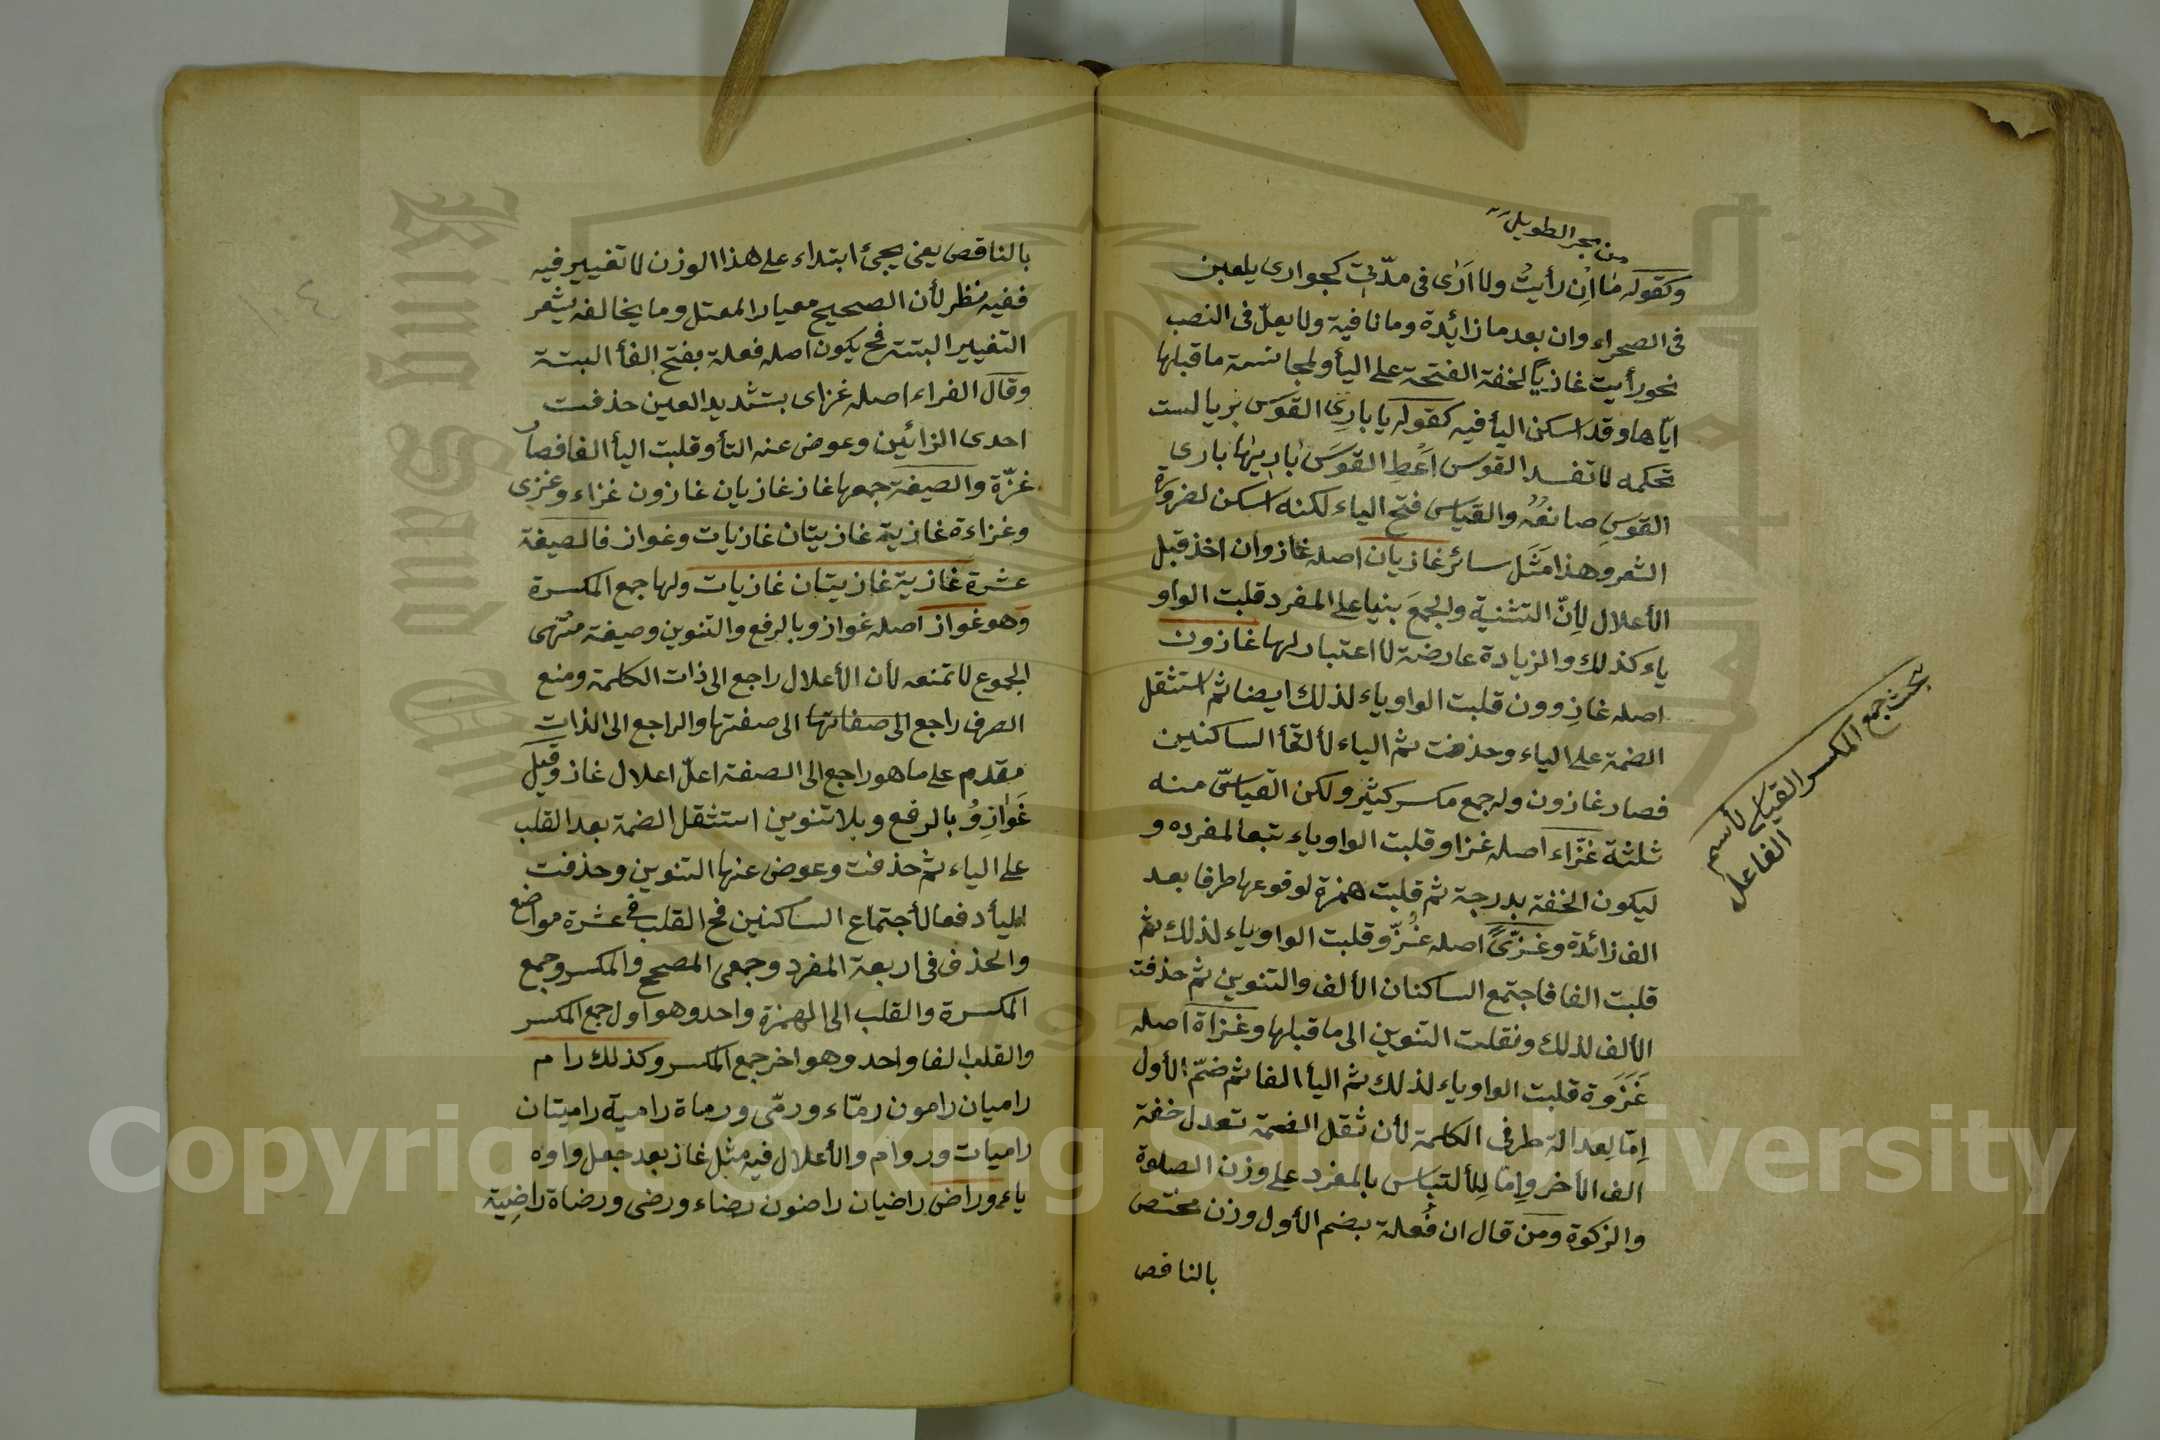 من بحر الطويل
وكقوله ما ان رأيت ولا ارى فى مدّتى كجوارى يلعبن
فى الصحراء وان بعد ما زائدة وما نافية ولا يعلّ فى النصب
نحو رأيت غازيًا لخفة الفتحة على اليأ ولمجانسة ما قبلها
ايّاها وقد اسكن اليأ فيه كقوله يا بارى القوس بريا لست
تحكمه لا تفسد القوس اعط القوس باريها بارى
القوس صانعه والقياس فتح الياء لكنه اسكن لضرورة
الشعر وهذا مثل سائر غازيان اصله غازوان اخذ قبل
الأعلال لأنّ التثنية والجمع بنيا على المفرد قلبت الواو
ياء كذلك والزيادة عارضة لا اعتبار لها غازون
اصله غازوون قلبت الواو ياء لذلك ايضا ثم استثقل
الضمة على الياء وحذفت ثم الياء لألتقأ الساكنين
فصار غازون وله جمع مكسر كثير ولكن القياسىّ منه
ثلثة غزّاء اصله غزاو قلبت الواو ياء تبعا لمفرده و
ليكون الخفة بدرجة ثم قلبت همزة لوقوعها طرفا بعد
الف زائدة وغزّىً اصله غزّو قلبت الواو ياء لذلك ثم
قلبت الفا فاجتمع الساكنان الألف والتنوين ثم حذفت
الألف لذلك ونقلت التنوين الى ما قبلها وغزاة اصله
غَزَوة قلبت الواو ياء لذلك ثم اليأ الفا ثم ضمّ الأول
إمّا لعدالة طرفى الكلمة لأن ثقل الضمة تعدل خفة
الف الأخر وإمّا للألتباس بالمفرد على وزن الصلوة
والزكوة ومن قال ان فُعلة بضم الأول وزن مختص
بالناقص
بحث جمع المكسر القياسى لأسم
الفاعل
بالناقص يعنى يجىء ابتداء على هذا الوزن لا تغيير فيه
ففيه نظر لأن الصحيح معيار المعتل وما يخالفه يشعر
التغيير البتة فح يكون اصله فعلة بفتح الفأ البتة
وقال الفراء اصله غزاى بتشديد العين حذفت
احدى الزائين وعوض عنه التأ وقلبت اليأ الفا فصار
غزّة والصيغة جمعها غاز غازيان غازون غزاء وغزى
وغزاءة غازية غازيتان غازيات وغواز فالصيغة
عشرة غازية غازيتان غازيات ولها جمع المكسرة
وهو غواز اصله غوازو بالرفع والتنوين وصيغة منتهى
الجموع لا تمنعه لأن الأعلال راجع الى ذات الكلمة ومنع
الصرف راجع الى صفاتها الى صفتها والراجع الى الذات
مقدم على ما هو راجع الى الصفة اعلّ اعلال غاز وقيل
غَوَازِوُ بالرفع وبلا تنوين استثقل الضمة بعد القلب
على الياء ثم حذفت وعوض عنها التنوين وحذفت
اليأ دفعا لأجتماع الساكنين فح القلب فى عشرة مواضع
والحذف فى اربعة المفرد وجمعى المصحح والمكسر وجمع
المكسرة والقلب الى الهمزة واحد وهو اول جمع المكسر
والقلب الفا واحد وهو اخر جمع المكسر وكذلك رام
راميان رامون رمّاء ورمّى ورماة رامية راميتان
راميات وروام والأعلال فيه مثل غاز بعد جعل واوه
ياء وراض راضيان راضون رضاء ورضى ورضاة راضِية
١٠٤
Copyright © King Saud University